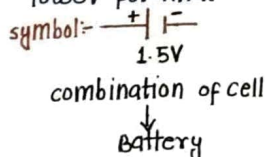 symbol:- + -
1.5V
combination of cell
Battery